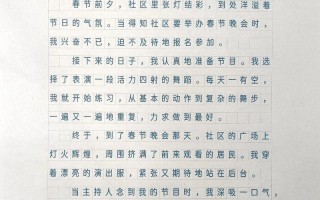 春节前夕，社区里张灯结彩，到处洋溢着
节日的气氛。当得知社区要举办春节晚会时，
我兴奋不已，迫不及待地报名参加。
接下来的日子，我认真地准备节目。我选
择了表演一段活力四射的舞蹈。每天一有空，
我就开始练习，从基本的动作到复杂的舞步，
一遍又一遍地重复，力求做到最好。
终于，到了春节晚会那天。社区的广场上
灯火辉煌，周围挤满了前来观看的居民。我穿
着漂亮的演出服，紧张又期待地站在后台。
当主持人念到我的节目时，我深吸一口气，